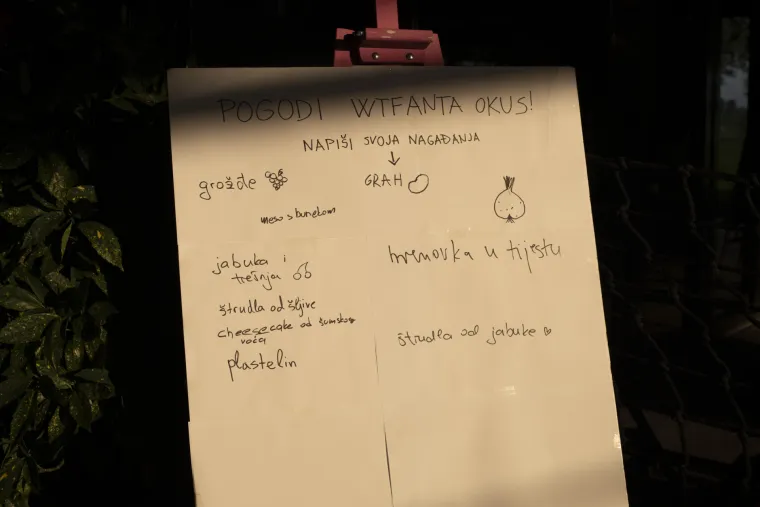 POGODI WTFANTA OKUS!
NAPIŠI SVOJA NAGAĐANJA
grožđe
GRAH
meso s burekom
jabuka i
trešnja
hrenovka u tijestu
štrudla od šljive
cheesecake od šumskog
voća
štrudla od jabuke
plastelin